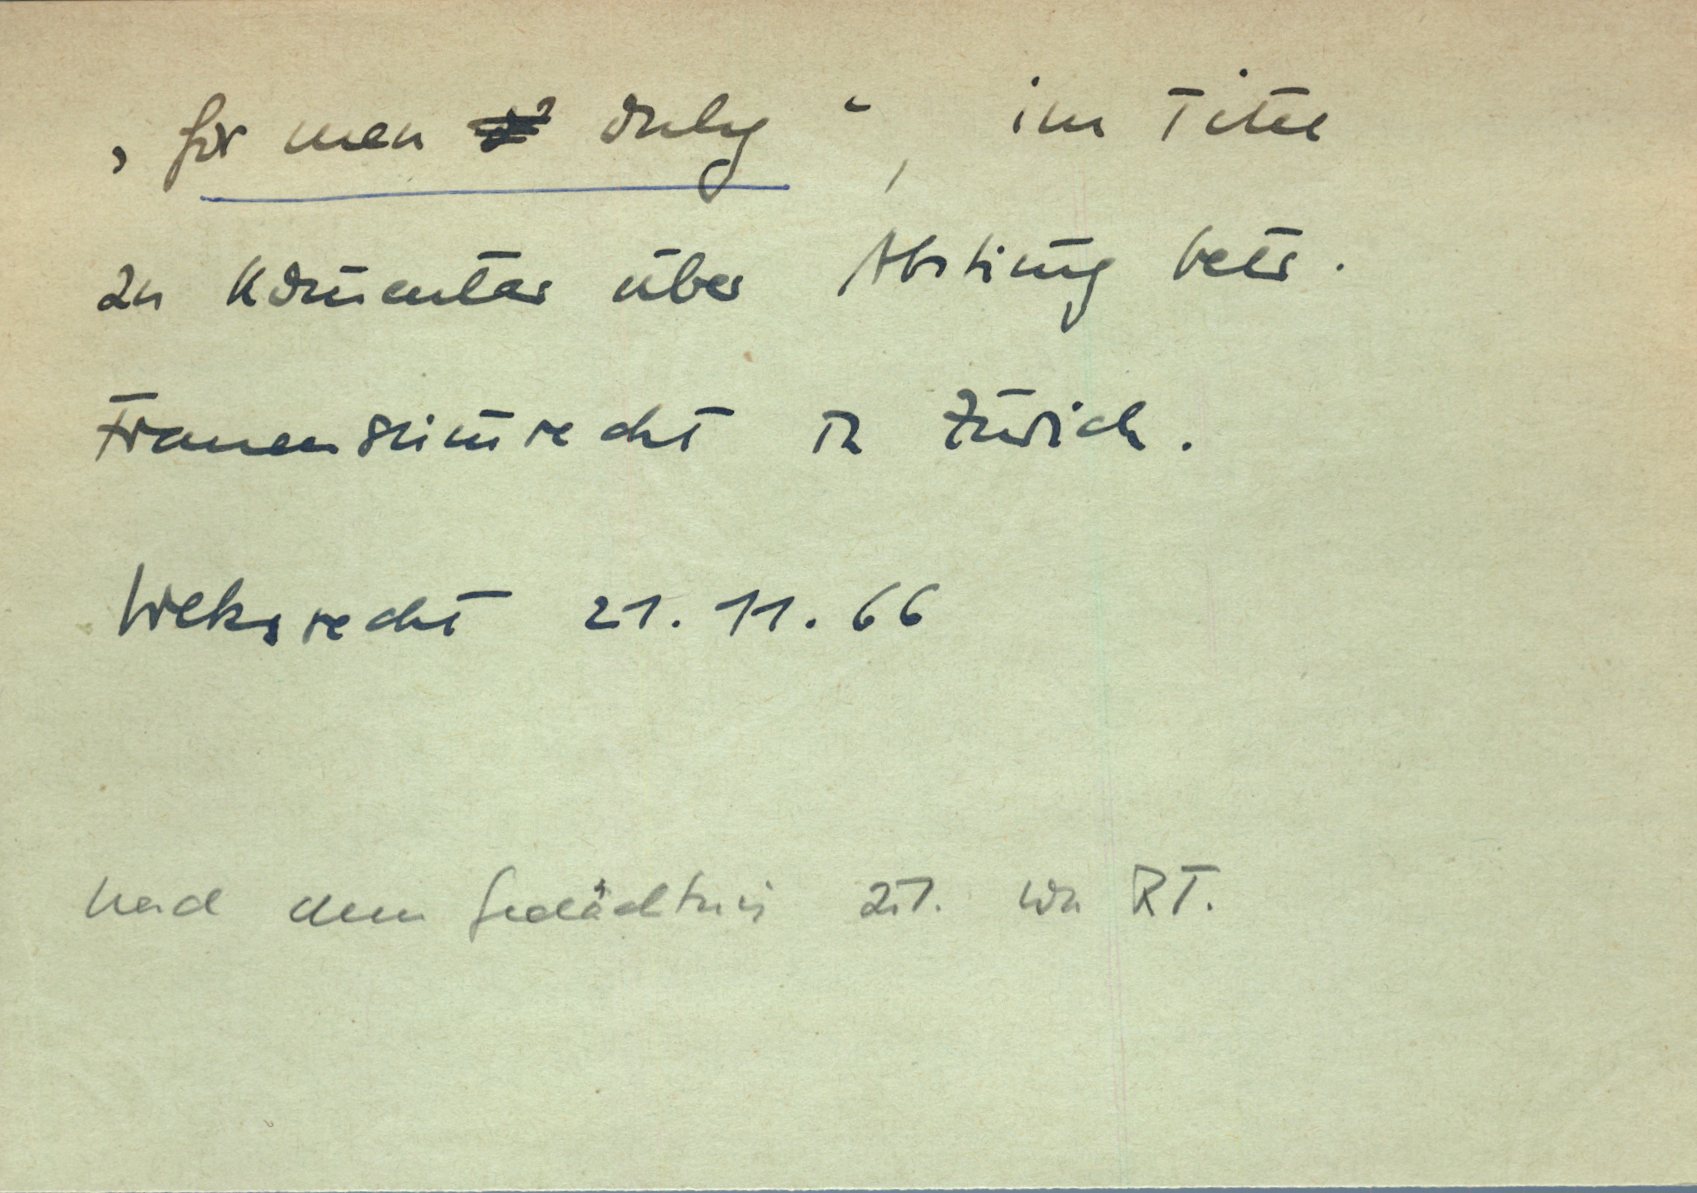 „for men only“, im Titel
zu Kom̄entar über Abstim̄g betr.
Frauenstim̄recht in Zürich.
Weltwoche 21.11.66
nach dem Gedächtnis zit. von RT.